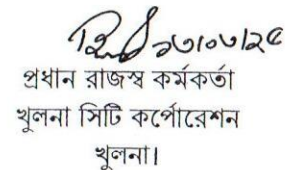 ১৩/০৩/২৫
প্রধান রাজস্ব কর্মকর্তা
খুলনা সিটি কর্পোরেশন
খুলনা।